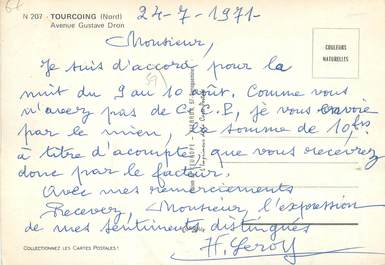 67
N 207 - TOURCOING (Nord)
Avenue Gustave Dron
24-7-1971-
Monsieur,
COULEURS
NATURELLES
Je suis d'accord pour la
nuit du 9 au 10 août. Comme vous
n'avez pas de C.C.P, je vous envoie
par le mien, la somme de 10, frs
à titre d'acompte, que vous recevrez
donc par le facteur.
Avec mes remerciements
Recevez, Monsieur, l'expression
de mes sentiments distingués
H. Leroy
COLLECTIONNEZ LES CARTES POSTALES !